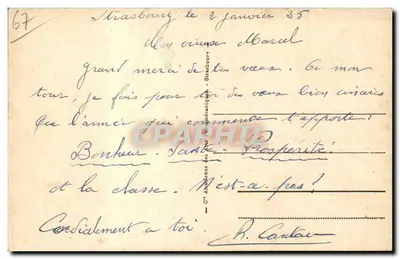 67
Strasbourg le 2 janvier 35
Mon vieux Marcel
Grand merci de tes voeux. A mon
tour, je fais pour toi des voeux bien sincères
Que l'année qui commence t'apporte:
Bonheur - Santé - Prosperité
et la classe. N'est-ce pas!
Cordialement a toi.
CPARAMA